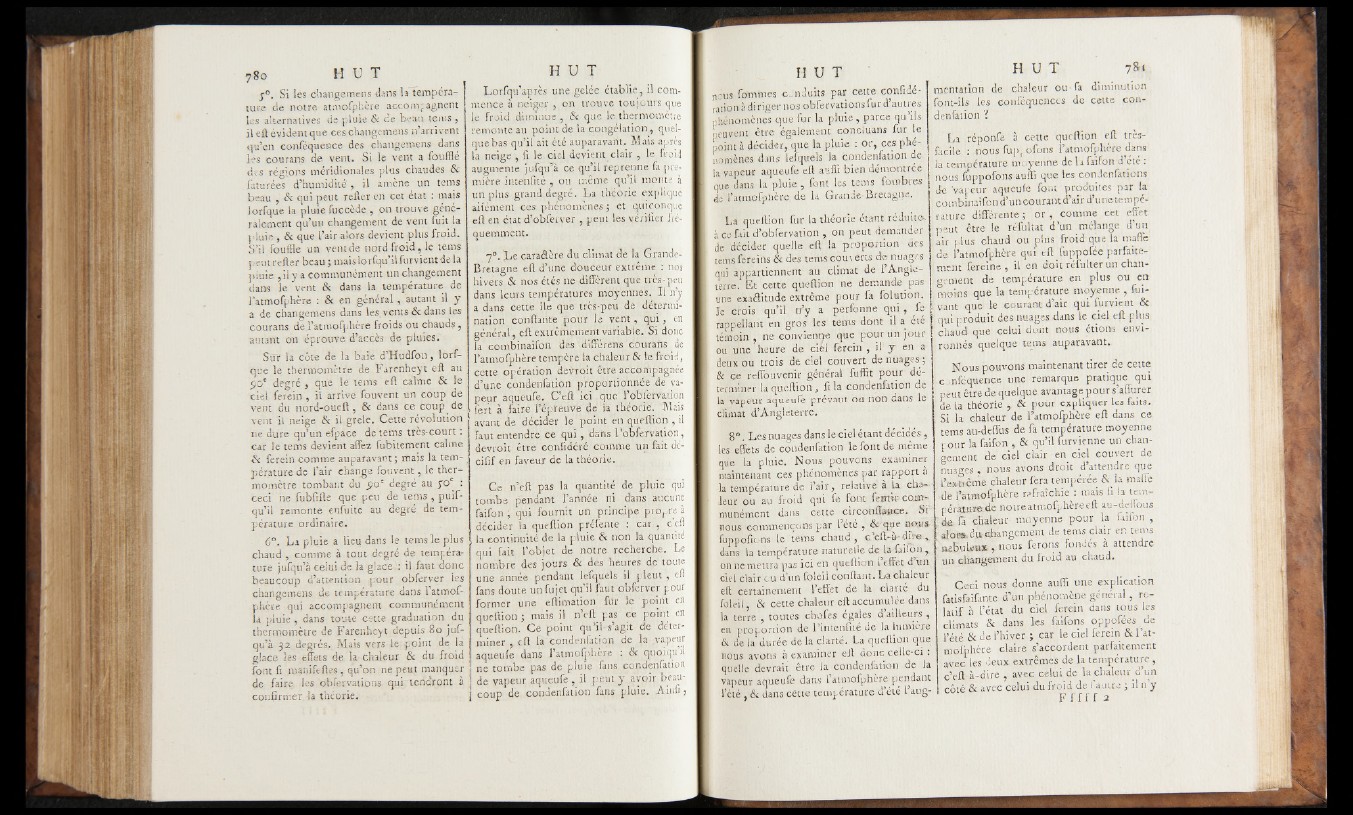 780 HUT
5°. Si les changemens dans la tempéra-
ture de notre atmosphère accompagnent
les alternatives de pluie & de beau tems,
il est évident que ces changemens n'arrivent
qu'en conséquence des changemens dans
les courans de vent. Si le vent a soufflé
des régions méridionales plus chaudes &
saturées d'humidité, il amène un tems
beau, & qui peut rester en cet état : mais
lorsque la pluie succède, on trouve géné-
ralement qu'un changement de vent suit la
pluie, & que l'air alors devient plus froid.
S'il souffle un vent de nord froid, le tems
peut rester beau ; mais lorsqu'il survient de la
pluie, il y a communément un changement
dans le vent & dans la température de
l'atmosphère : & en général, autant il y
a de changemens dans les vents & dans les
courans de l'atmosphère froids ou chauds,
autant on éprouve d'accès de pluies.
Sur la côte de la baie d'Hudson, lors-
que le thermomètre de Farenheyt est au
90e degré, que le tems est calme & le
ciel serein, il arrive souvent un coup de
vent du nord-ouest, & dans ce coup de
vent il neige & il grele. Cette révolution
ne dure qu'un espace de tems très-court :
car le tems devient assez subitement calme
& serein comme auparavant ; mais la tem-
pérature de l'air change souvent, le ther-
momètre tombant du 90e degré au 50e :
ceci ne subsiste que peu de tems, puis-
qu'il remonte ensuite au degré de tem-
pérature ordinaire.
6°. La pluie a lieu dans le tems le plus
chaud, comme à tout degré de tempéra-
ture jusqu'à celui de la glace : il faut donc
beaucoup d'attention pour observer les
changemens de température dans l'atmos-
phère qui accompagnent communément
la pluie, dans toute cette graduation du
thermomètre de Farenheyt depuis 80 jus-
qu'à 32 degrés. Mais vers le point de la
glace les effets de la chaleur & du froid
sont si manifestes, qu'on ne peut manquer
de faire les observations qui tendront à
confirmer la théorie.
HUT
Lorsqu'après une gelée établie, il com-
mence à neiger, on trouve toujours que
le froid diminue, & que le thermomètre
remonte au point de la congélation, quel-
que bas qu'il ait été auparavant. Mais après
la neige, si le ciel devient clair, le froid
augmente jusqu'à ce qu'il reprenne sa pre-
mière intensité, ou même qu'il monte à
un plus grand degré. La théorie explique
aisément ces phénomènes ; et quiconque
est en état d'observer, peut les vérifier fré-
quemment.
7°. Le caractère du climat de la Grande-
Bretagne est d'une douceur extrême : nos
hivers & nos étés ne diffèrent que très-peu
dans leurs températures moyennes. Il n'y
a dans cette île que très-peu de détermi-
nation constante pour le vent, qui, en
général, est extrêmement variable. Si donc
la combinaison des différens courans de
l'atmosphère tempère la chaleur & le froid,
cette opération devroit être accompagnée
d'une condensation proportionnée de va-
peur aqueuse. C'est ici que l'observation
sert à faire l'épreuve de la théorie. Mais
avant de décider le point en question, il
faut entendre ce qui, dans l'observation,
devroit être considéré comme un fait dé-
cisif en faveur de la théorie.
Ce n'est pas la quantité de pluie qui
tombe pendant l'année ni dans aucune
saison, qui fournit un principe propre à
décider la question présente : car, c'est
la continuité de la pluie & non la quantité
qui fait l'objet de notre recherche. Le
nombre des jours & des heures de toute
une année pendant lesquels il pleut, est
sans doute un sujet qu'il faut observer pour
former une estimation sur le point en
question ; mais il n'est pas ce point en
question. Ce point qu'il s'agit de déter-
miner, est la condensation de la vapeur
aqueuse dans l'atmosphère : & quoiqu'il
ne tombe pas de pluie sans condensation
de vapeur aqueuse, il peut y avoir beau-
coup de condensation sans pluie. Ainsi,
HUT
nous sommes conduits par cette considé-
ration à diriger nos observations sur d'autres
phénomènes que sur la pluie, parce qu'ils
peuvent être également concluans sur le
point à décider, que la pluie : or, ces phé-
nomènes dans lesquels la condensation de
la vapeur aqueuse est aussi bien démontrée
que dans la pluie, sont les tems sombres
de l'atmosphère de la Grande Bretagne.
La question sur la théorie étant réduite
à ce fait d'observation, on peut demander
de décider quelle est la proportion des
tems sereins & des tems couverts de nuages
qui appartiennent au climat de l'Angle-
terre. Et cette question ne demande pas
une exactitude extrême pour sa solution.
Je crois qu'il n'y a personne qui, se
rappellant en gros les tems dont il a été
témoin, ne convienne que pour un jour
ou une heure de ciel serein, il y en a
deux ou trois de ciel couvert de nuages ;
& ce ressouvenir général suffit pour dé-
terminer la question, si la condensation de
la vapeur aqueuse prévaut ou non dans le
climat d'Angleterre.
8°. Les nuages dans le ciel étant décidés,
les effets de condensation le sont de même
que la pluie. Nous pouvons examiner
maintenant ces phénomènes par rapport à
la température de l'air, relative à la cha-
leur ou au froid qui se font sentir com-
munément dans cette circonstance. Si
nous commençons par l'été, & que nous
supposions le tems chaud, c'est-à-dire,
dans la température naturelle de la saison,
on ne mettra pas ici en question l'effet d'un
ciel clair ou d'un soleil constant. La chaleur
est certainement l'effet de la clarté du
soleil, & cette chaleur est accumulée dans
la terre, toutes choses égales d'ailleurs,
en proportion de l'intensité de la lumière
& de la durée de la clarté. La question que
nous avons à examiner est donc celle-ci :
quelle devrait être la condensation de la
vapeur aqueuse dans l'atmosphère pendant
l'été, & dans cette température d'été l'aug-
HUT 781
mentation de chaleur ou sa diminution
sont-ils les conséquences de cette con-
densation ?
La réponse à cette question est très-
facile : nous supposons l'atmosphère dans
la température moyenne de la saison d'été :
nous supposons aussi que les condensations
de vapeur aqueuse sont produites par la
combinaison d'un courant d'air d'une tempé-
rature différente ; or, comme cet effet
peut être le résultat d'un mélange d'un
air plus chaud ou plus froid que la masse
de l'atmosphère qui est supposée parfaite-
ment sereine, il en doit résulter un chan-
gement de température en plus ou en
moins que la température moyenne, sui-
vant que le courant d'air qui survient &
qui produit des nuages dans le ciel est plus
chaud que celui dont nous étions envi-
ronnés quelque tems auparavant.
Nous pouvons maintenant tirer de cette
conséquence une remarque pratique qui
peut être de quelque avantage pour s'assurer
de la théorie, & pour expliquer les faits.
Si la chaleur de l'atmosphère est dans ce
tems au-dessus de sa température moyenne
pour la saison, & qu'il survienne un chan-
gement de ciel clair en ciel couvert de
nuages, nous avons droit d'attendre que
l'extrême chaleur sera tempérée & la masse
de l'atmosphère rafraîchie : mais si la tem-
pérature de notre atmosphère est au-dessous
de sa chaleur moyenne pour la saison,
alors, du changement de tems clair en tems
nébuleux, nous serons fondés à attendre
un changement du froid au chaud.
Ceci nous donne aussi une explication
satisfaisante d'un phénomène général, re-
latif à l'état du ciel serein dans tous les
climats & dans les saisons opposées de
l'été & de l'hiver ; car le ciel serein & l'at-
mosphère claire s'accordent parfaitement
avec les deux extrêmes de la température,
c'est à-dire, avec celui de la chaleur d'un
côté & avec celui du froid de l'autre ; il n'y
Fffff 2